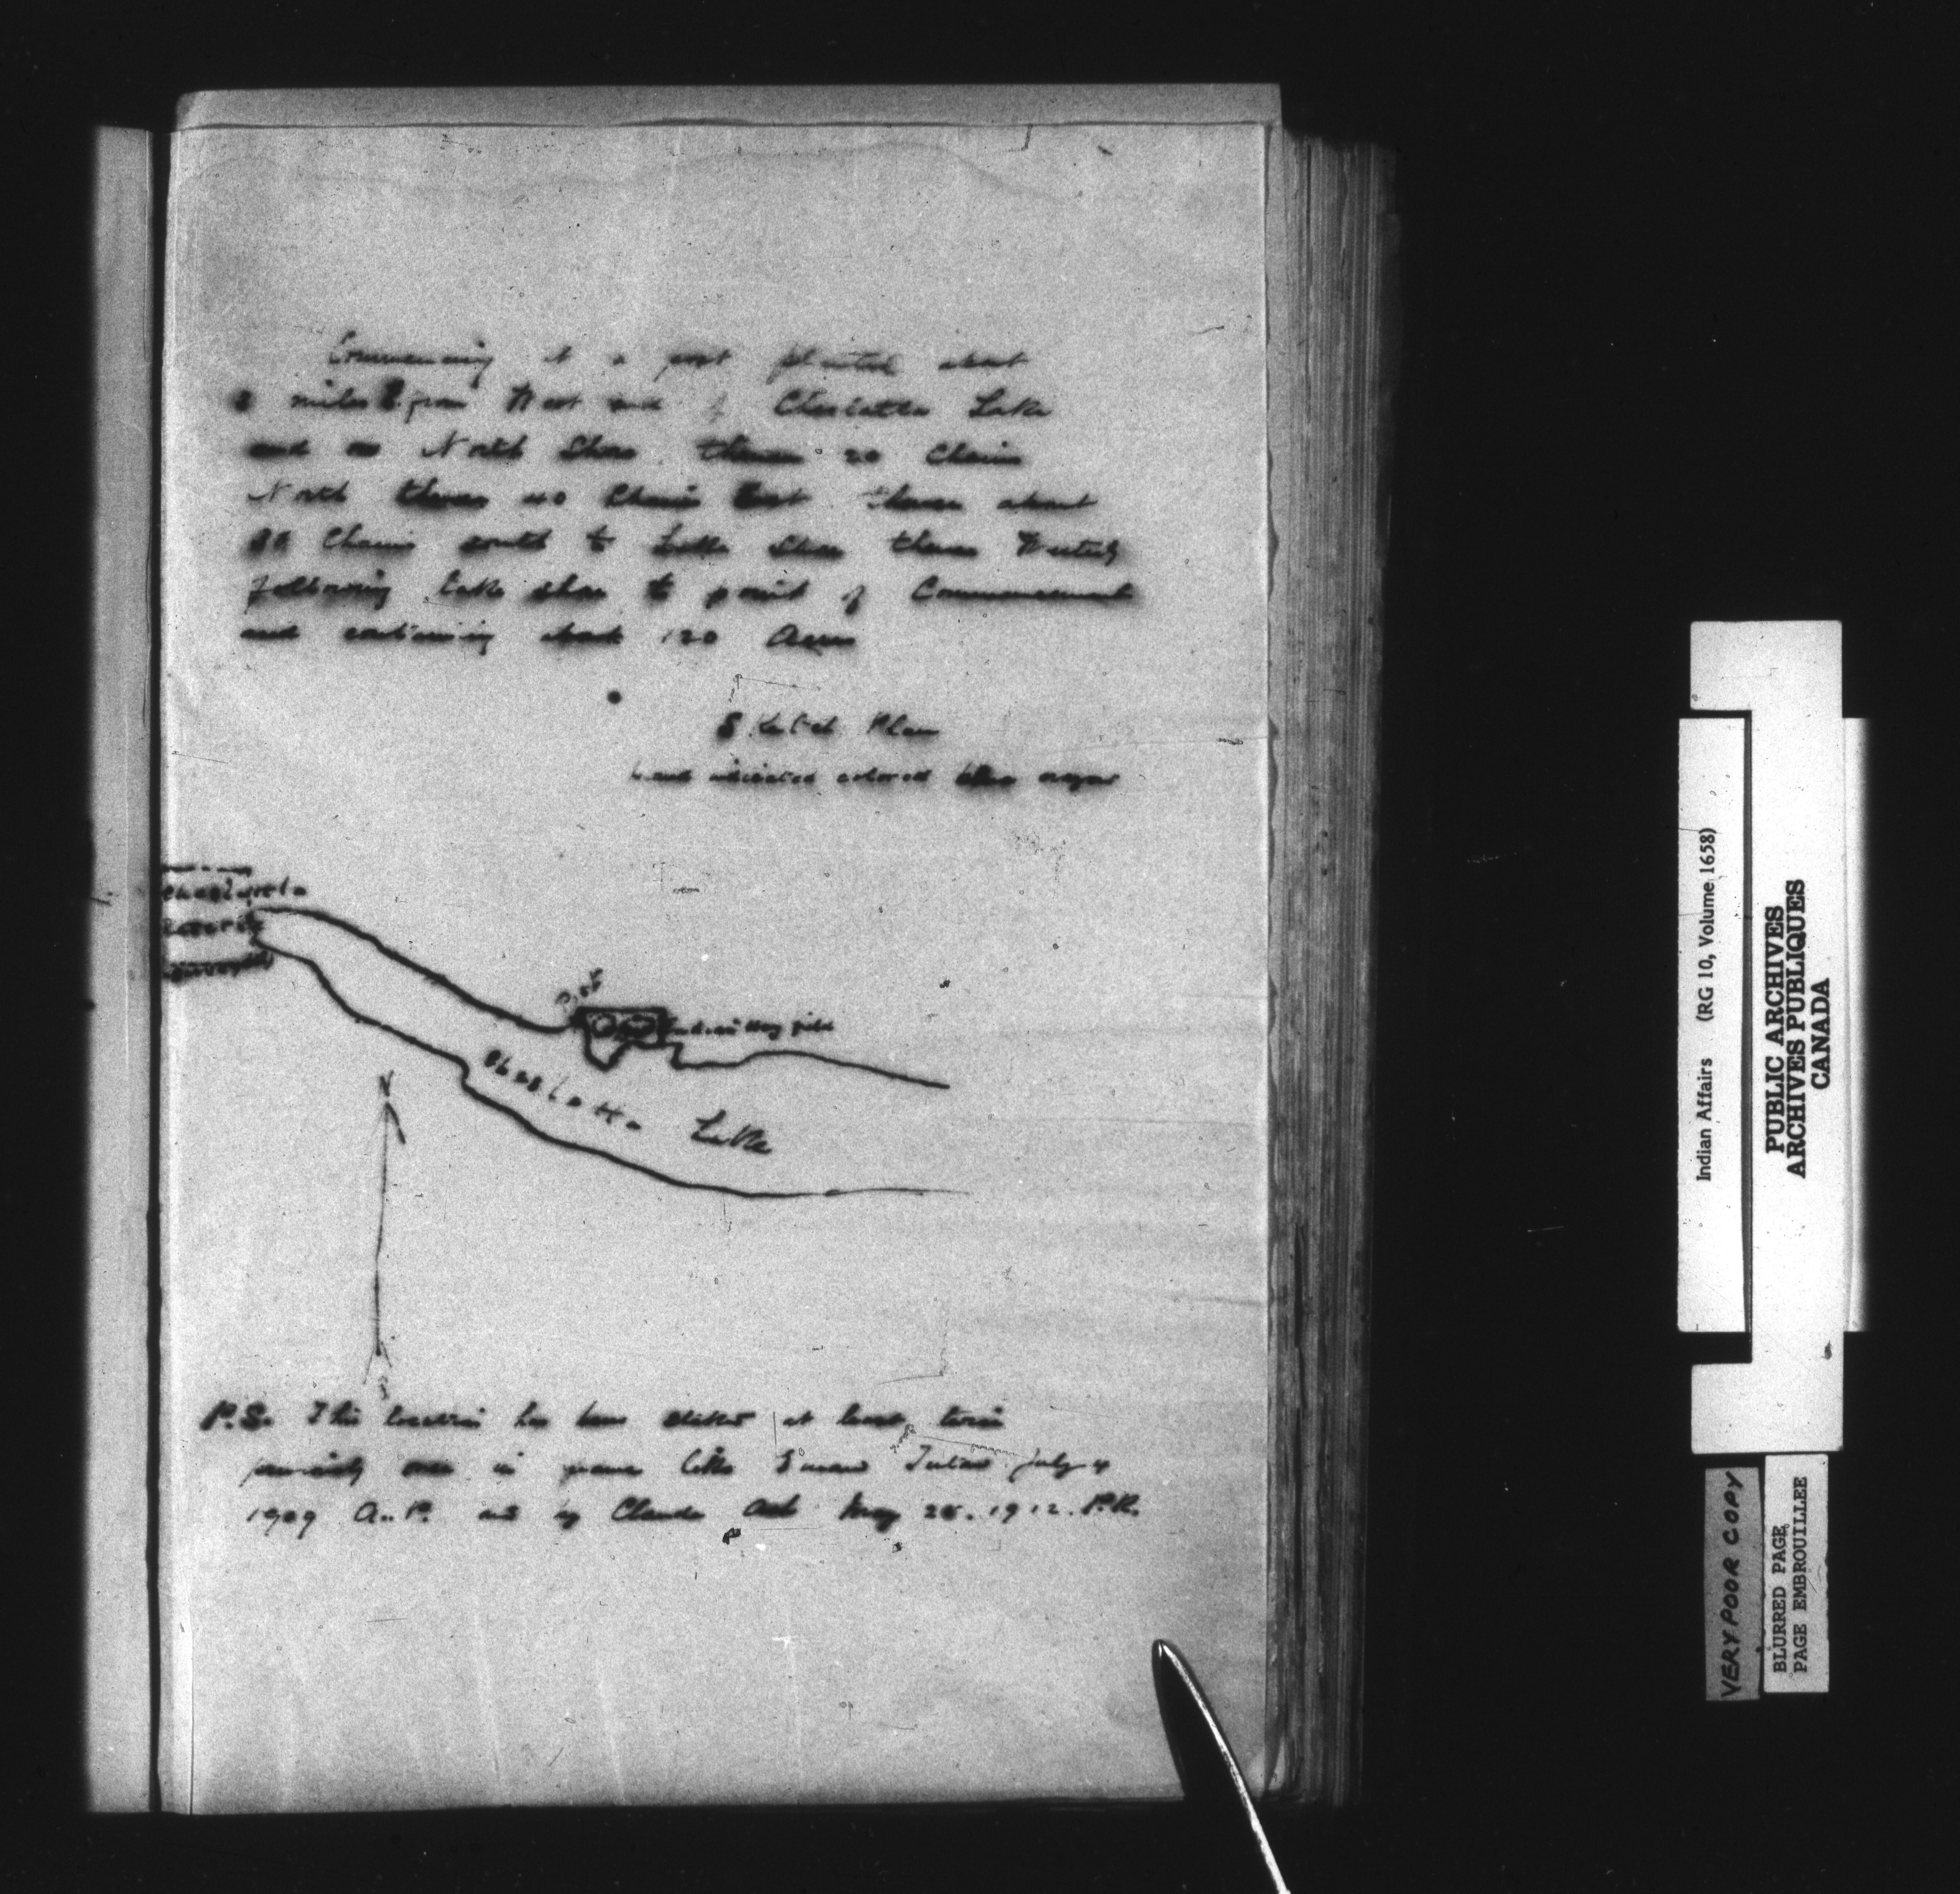 Commencing at a post planted about
2 miles E from West end of Chaslatta Lake
and on North Shore thence 20 Chains
North thence 40 Chains East thence about
Chains south to Lake Shore thence Westerly
following lake shore to point of Commencement
and containing about 120 Acres
Sketch Plan
Land indicated colored
Post
Indian Hay field
Chaslatta Lake
N
S
P.S. This location has been staked at least twice
previously once in name July 4
1909 A.P. and by Claude May 25. 1912. P.R.
Indian Affairs (RG 10, Volume 1658)
PUBLIC ARCHIVES
ARCHIVES PUBLIQUES
CANADA
VERY POOR COPY
BLURRED PAGE
PAGE EMBROUILLEE